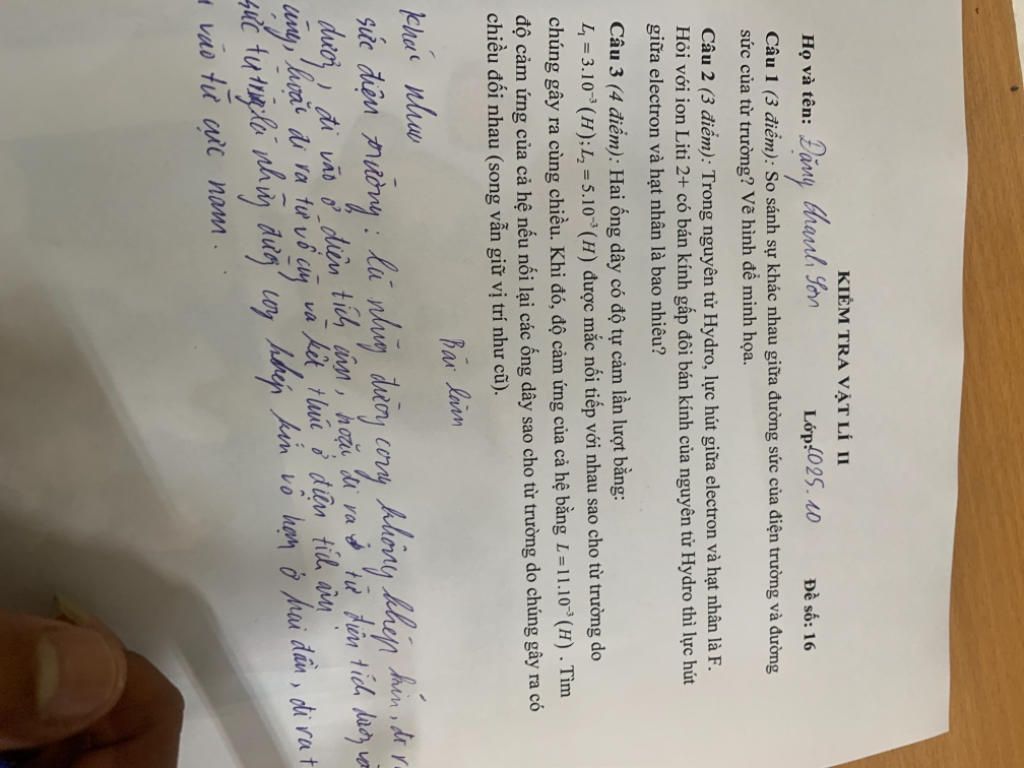 KIỂM TRA VẬT LÍ II
Họ và tên: Đặng Thanh Sơn Lớp: 2025.10 Đề số: 16
Câu 1 (3 điểm): So sánh sự khác nhau giữa đường sức của điện trường và đường
sức của từ trường? Vẽ hình để minh họa.
Câu 2 (3 điểm): Trong nguyên tử Hydro, lực hút giữa electron và hạt nhân là F.
Hỏi với ion Liti 2+ có bán kính gấp đôi bán kính của nguyên tử Hydro thì lực hút
giữa electron và hạt nhân là bao nhiêu?
Câu 3 (4 điểm): Hai ống dây có độ tự cảm lần lượt bằng:
L₁ = 3.10⁻³ (H); L₂ = 5.10⁻³ (H) được mắc nối tiếp với nhau sao cho từ trường do
chúng gây ra cùng chiều. Khi đó, độ cảm ứng của cả hệ bằng L = 11.10⁻³ (H) . Tìm
độ cảm ứng của cả hệ nếu nối lại các ống dây sao cho từ trường do chúng gây ra có
chiều đối nhau (song vẫn giữ vị trí như cũ).
Bài làm
khác nhau
sức điện trường: là những đường cong không khép kín, đi r
dương, đi vào ở điện tích âm, hoặc đi ra từ điện tích dương và
cùng, hoặc đi ra từ vô cùng và kết thúc ở điện tích âm
sức từ trường là những đường cong khép kín vô hạn ở hai đầu, đi ra t
vào từ cực nam.